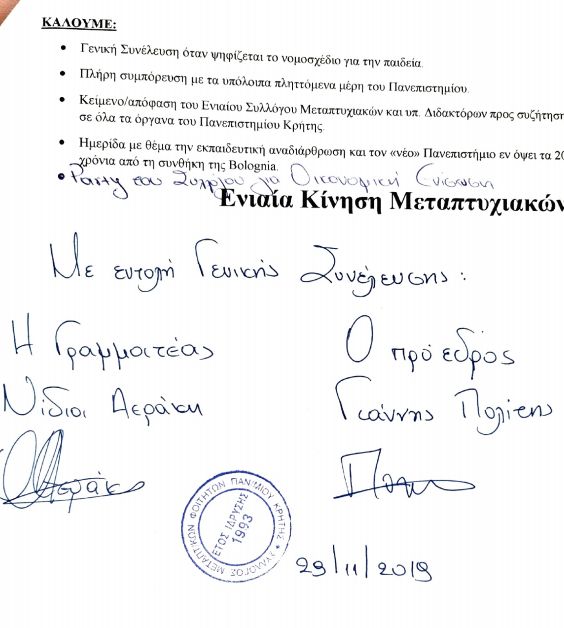 ΚΑΛΟΥΜΕ:
• Γενική Συνέλευση όταν ψηφίζεται το νομοσχέδιο για την παιδεία.
• Πλήρη συμπόρευση με τα υπόλοιπα πληττόμενα μέρη του Πανεπιστημίου.
• Κείμενο/απόφαση του Ενιαίου Συλλόγου Μεταπτυχιακών και υπ. Διδακτόρων προς συζήτηση
σε όλα τα όργανα του Πανεπιστημίου Κρήτης.
• Ημερίδα με θέμα την εκπαιδευτική αναδιάρθρωση και τον «νέο» Πανεπιστήμιο εν όψει τα 20
χρόνια από τη συνθήκη της Bologna.
• Party του Συλλόγου για Οικονομική Ενίσχυση
Ενιαία Κίνηση Μεταπτυχιακών
Με εντολή Γενικής Συνέλευσης:
Η Γραμματέας
Ο πρόεδρος
Αεράκη
Γιάννης Πολίτης
ΣΥΛΛΟΓΟΣ ΜΕΤΑΠΤΚΩΝ ΦΟΙΤΗΤΩΝ ΠΑΝ/ΜΙΟΥ ΚΡΗΤΗΣ
ΕΤΟΣ ΙΔΡΥΣΗΣ
1993
29/11/2019